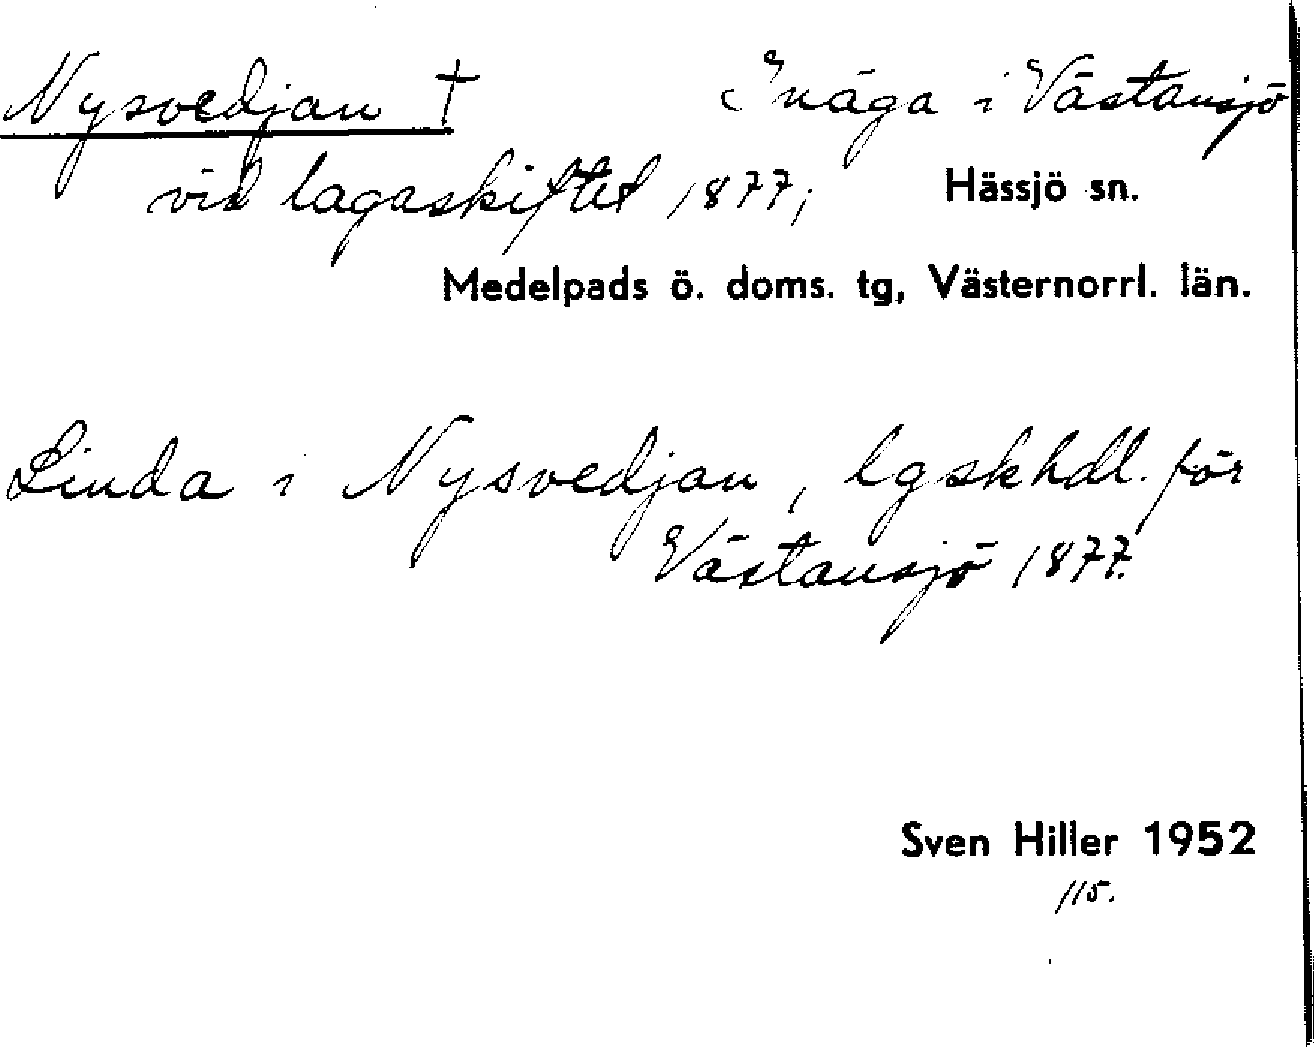 Nysvedjan † Inäga i Västansjö
vid lagaskiftet 1877; Hässjö sn.
Medelpads ö. doms. tg, Västernorrl. län.
Linda i Nysvedjan, lgskhdl. för
Västansjö 1877.
Sven Hiller 1952
115.